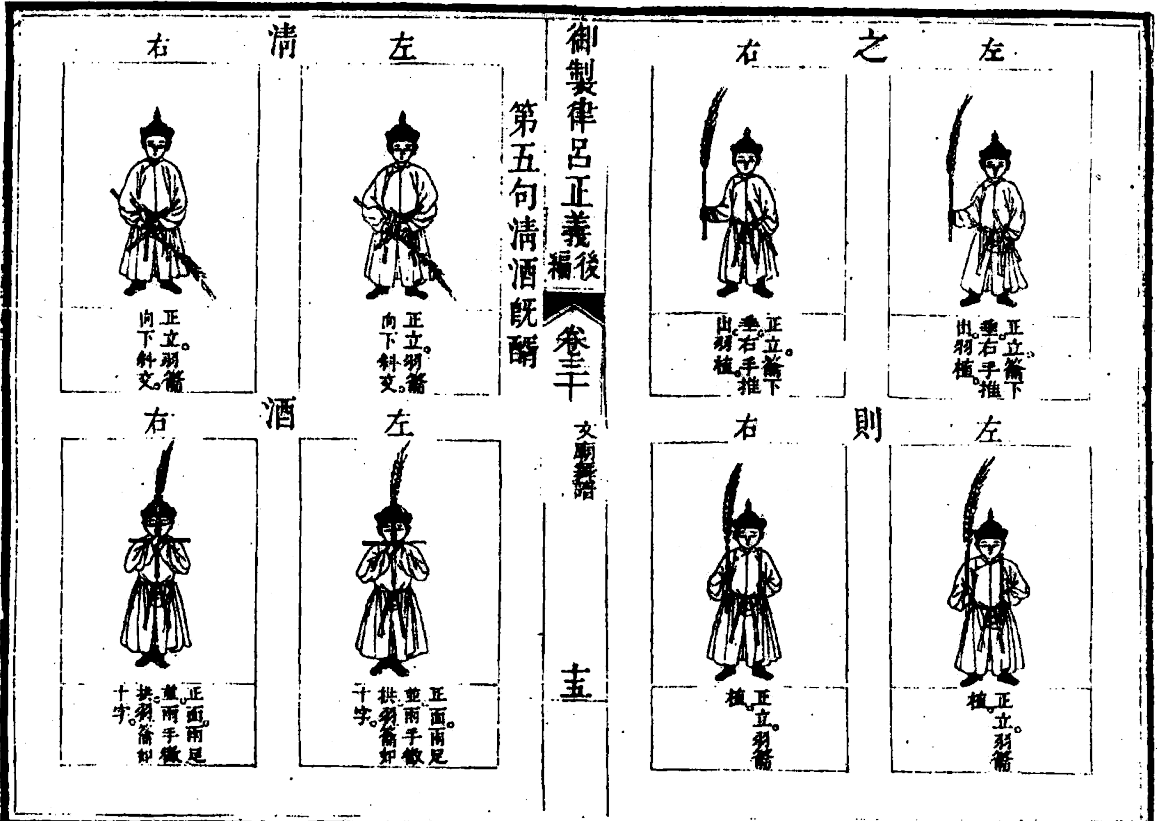 之
左
正立籥下
垂右手推
出羽植。
右
正立。籥下
垂右手推
出羽植。
則
左
正立。羽籥
植。
右
正立。羽籥
植。
御製律呂正義後編
卷三十
文廟舞譜
十五
第五句清酒既醑
清
左
正立。羽籥
向下斜交。
右
正立。羽籥
向下斜交。
酒
左
正面。兩足
並兩手微
拱羽籥如
十字。
右
正面。兩足
並兩手微
拱羽籥如
十字。